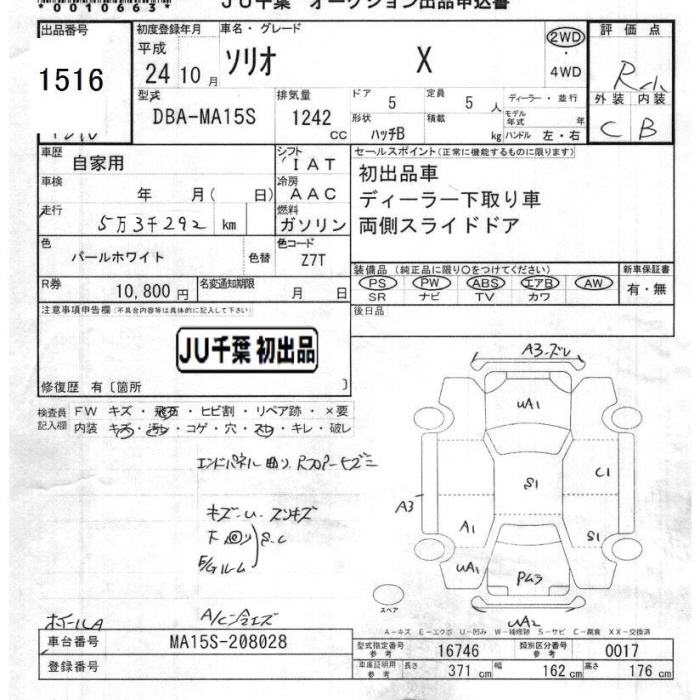 *0010663*
JU千葉 オークション出品申込書
出品番号 初度登録年月 車名・グレード 評価点
1516 平成 24年10月 ソリオ X 2WD ・ 4WD R
外装 内装
C B
型式 排気量 ドア 定員 ディーラー・並行
DBA-MA15S 1242 CC 5 5人 モデル年式 年
形状 ハッチB 積載 kg ハンドル 左・右
車歴 自家用 シフト IAT セールスポイント(正常に機能するものに限ります)
車検 年 月( 日) 冷房 AAC 初出品車
走行 5万3千292 km 燃料 ガソリン ディーラー下取り車
両側スライドドア
色 パールホワイト 色替 色コード Z7T
装備品(純正品に限り○をつけてください) 新車保証書
R券 10,800円 名変通知期限 月 日 PS PW ABS エアB AW 有・無
SR ナビ TV カワ
注意事項申告欄(不具合内容等は具体的に記入して下さい) 後日品
JU千葉 初出品
修復歴 有〔箇所 〕
検査員記入欄 FW キズ・飛石・ヒビ割・リペア跡・×要
内装 キズ・汚れ・コゲ・穴・スレ・キレ・破レ
エンドパネル曲り
キズ・U・スリキズ
A3.ズレ
UA1
C1
S1
A3
A1
S1
UA1
Pムラ
UA2
スペア
ホイールA
A-キズ E-エクボ U-凹み W-補修跡 S-サビ C-腐食 XX-交換済
車台番号 MA15S-208028
登録番号
型式指定番号 参考 16746 類別区分番号 参考 0017
車庫証明用 参考 長さ 371cm 幅 162cm 高さ 176cm